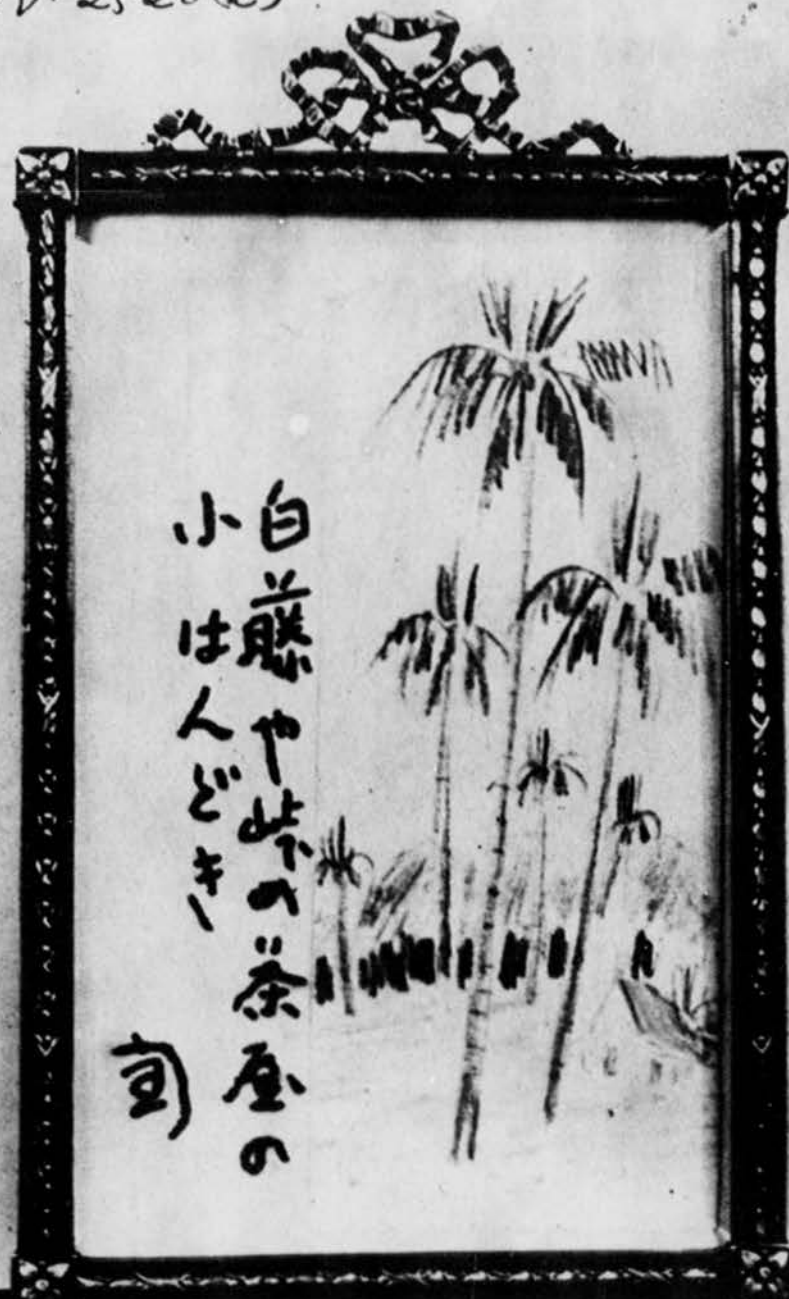 白藤や峠の茶屋の
小はんどき